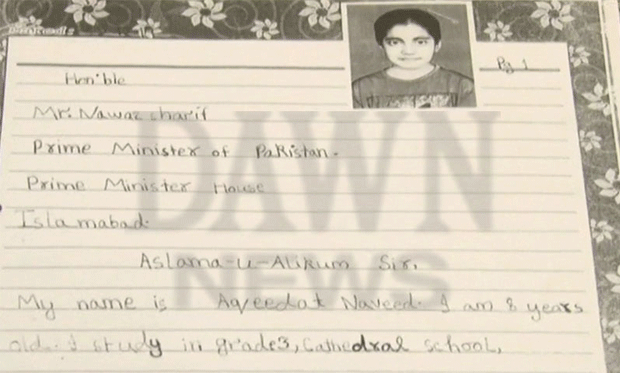 Pg 1
Hon'ble
Mr. Nawaz sharif
Prime Minister of Pakistan.
Prime Minister House
Islamabad.
Aslama-u-Alikum Sir,
My name is Aqeedat Naveed. I am 8 years
old. I study in grade3, Cathedral school,
DAWN
NEWS